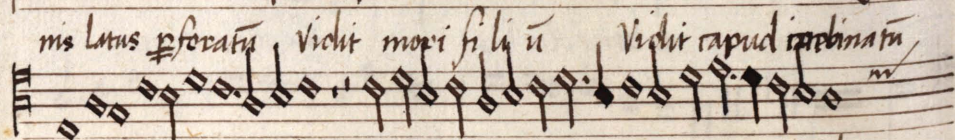 nis latus ꝑforatū vidit mori fi li ū Vidit capud inclinatū